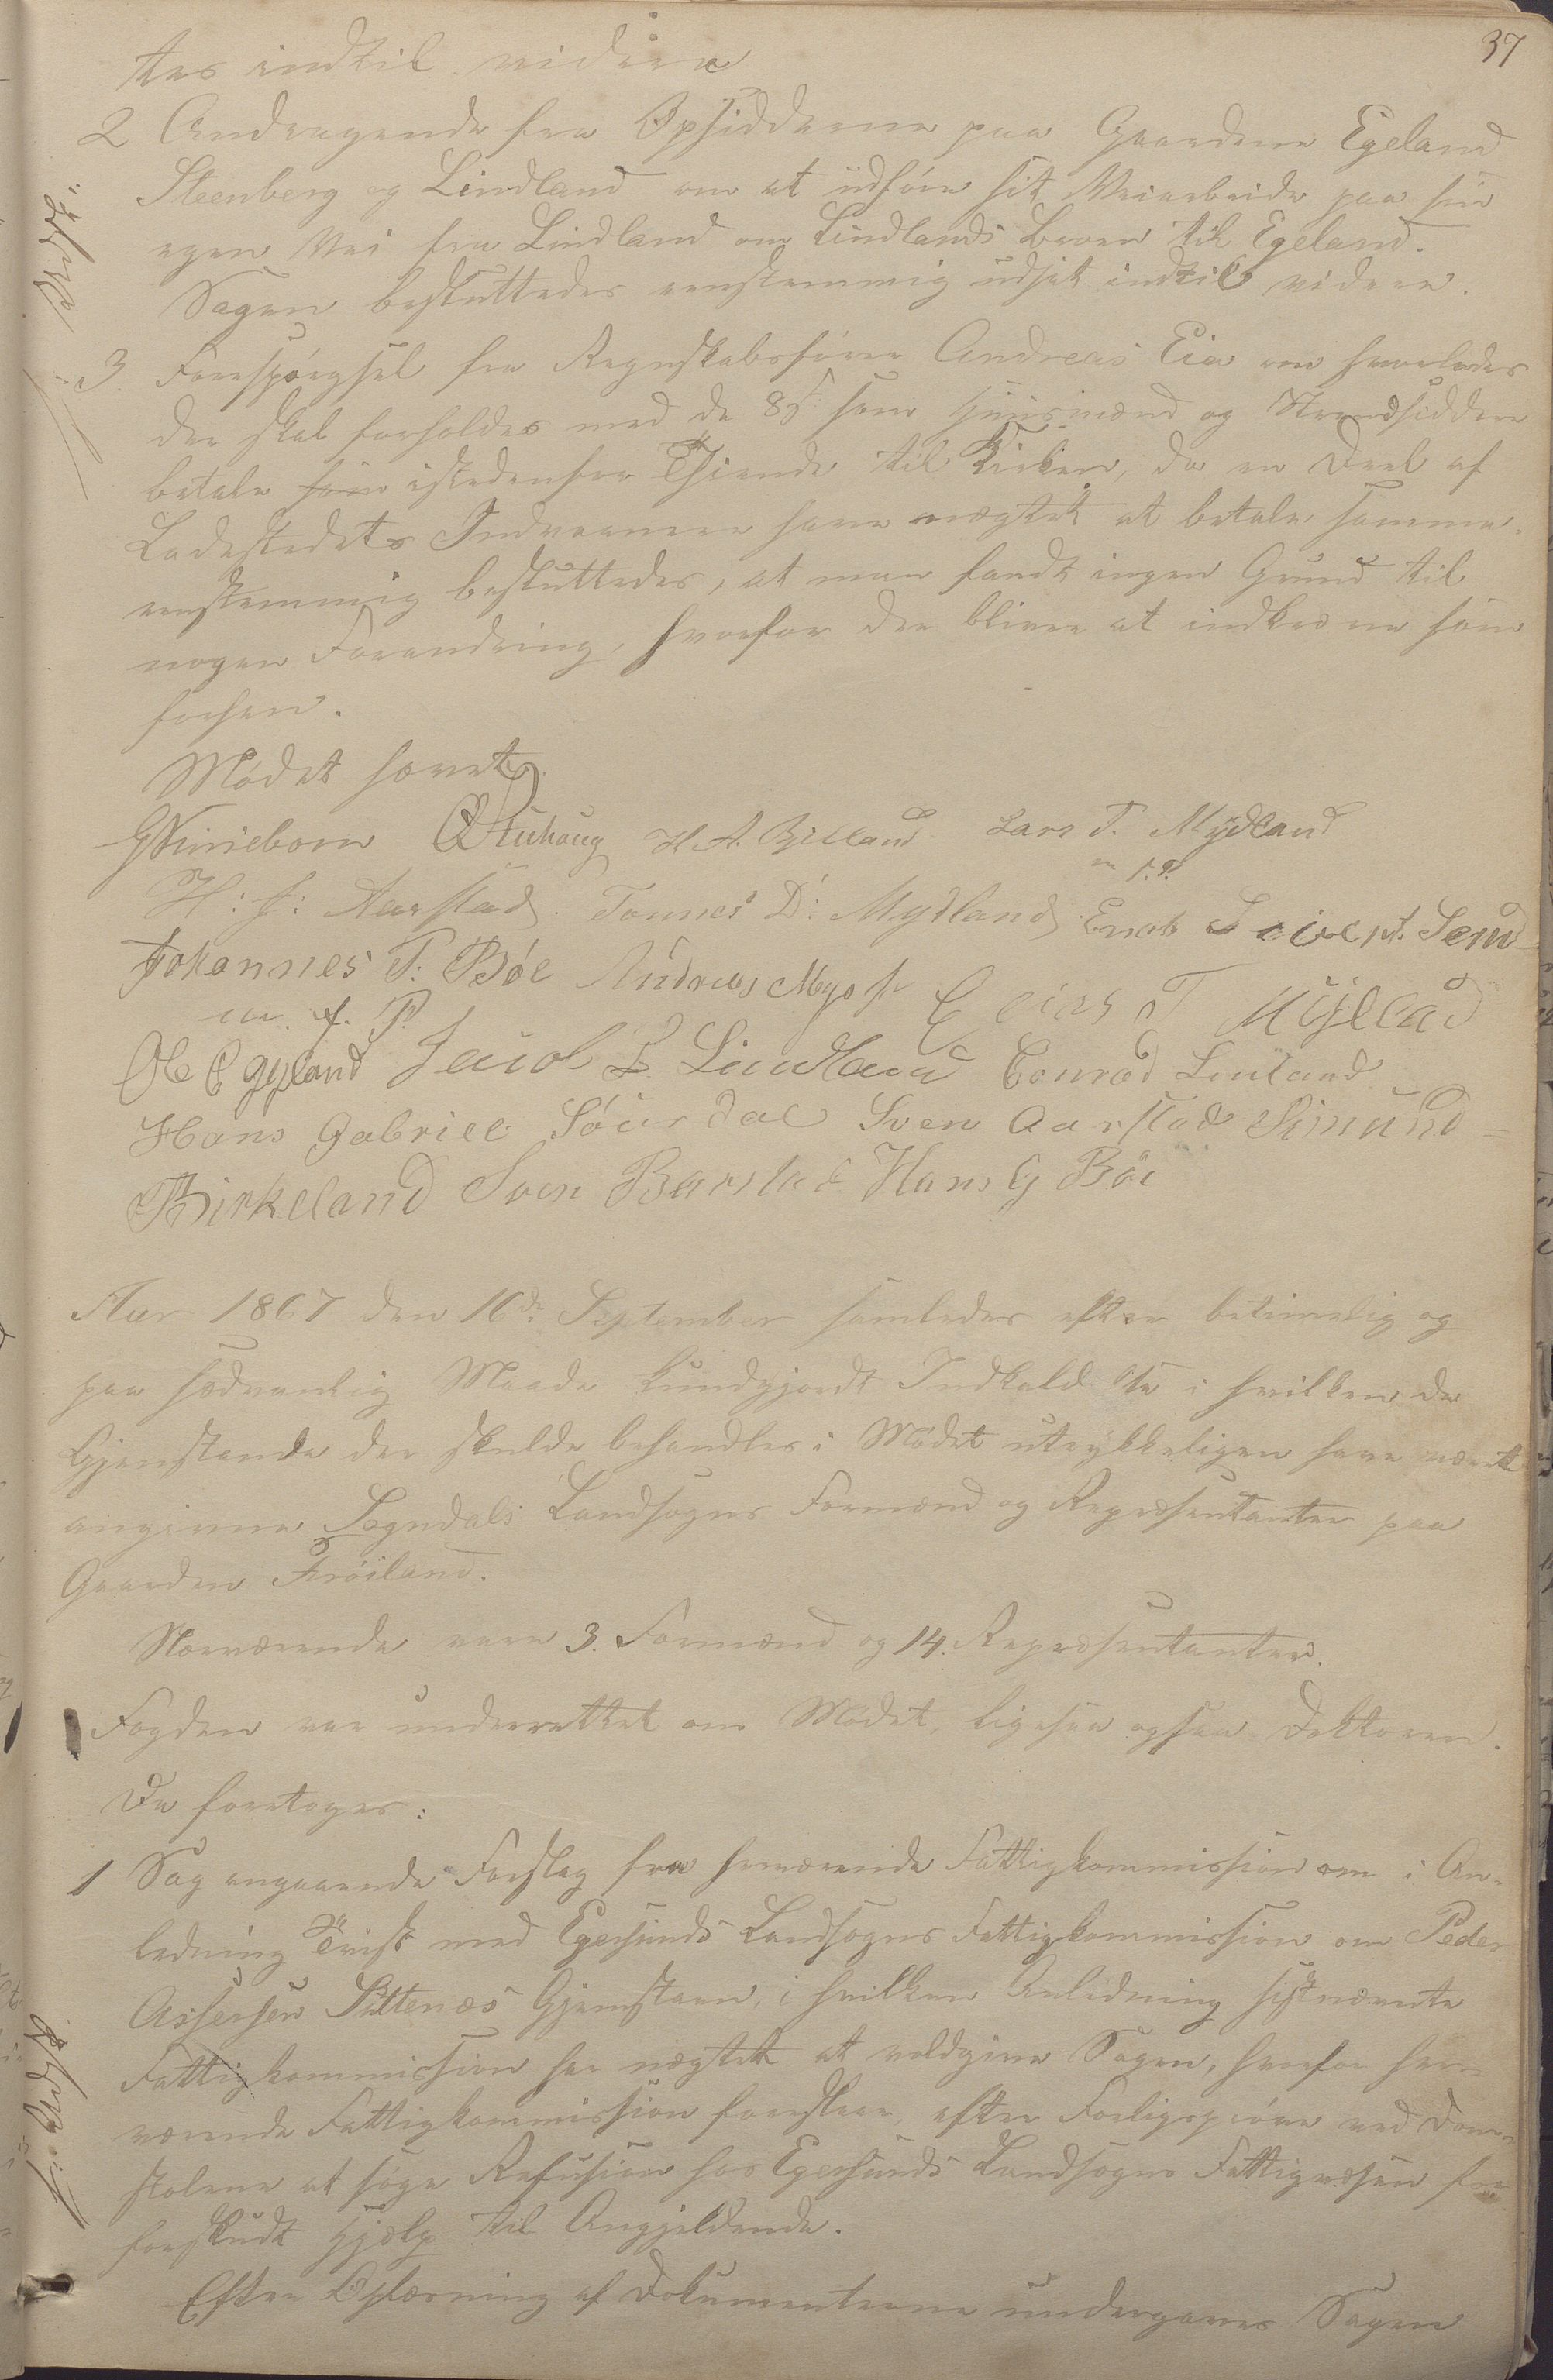 37
tes indtil videre
2 Andragende fra Opsidderne paa Gaardene Egeland
Steenberg og Lindland om at udføre sit Veiarbeide paa sin
egen Vei fra Lindland om Lindlands Broen til Egeland.
Sagen besluttedes eenstemmig udsat indtil videre.
3 Forespørgsel fra Regnskabsfører Andreas Eia om hvorledes
der skal forholdes med de 8 ß som Huusmænd og Strandsiddere
betale som istedenfor Thiende til Kirken, da en Deel af
Ladestedets Indvaanere have nægtet at betale samme.
eenstemmig besluttedes, at man fandt ingen Grund til
nogen Forandring, hvorfor der bliver at indkræve som
forhen.
Mødet hævet.
H. A. Lars T. Mydland
m f. P.
H: J: Aarstad. Tønnes D: Mydland Enok Seivert. Send
Johannes T. Bøe Andreas Myos
m. f. P. E T Mydland
Ole E Jacob L Lindland Conrad
Hans Gabriel Sven Aarstad Simund =
Birkeland Sven Barstad Hans G Bøe
Aar 1867 den 16de September samledes efter betimelig og
paa sædvanlig Maade kundgjordt Indkaldelse i hvilken de
Gjenstande der skulde behandles i Mødet utrykkeligen have været
angivne Sogndals Landsogns Formænd og Repræsentanter paa
Gaarden Frøiland.
Nærværende vare 3. Formænd og 14. Repræsentanter.
Fogden var underrettet om Mødet, ligesaa ogsaa Doktoren.
Da foretoges:
1 Sag angaaende Forslag fra herværende Fattigkommission om i An-
ledning Tvist med Egersunds Landsogns Fattigkommission om Peder
Assersen i hvilken Anledning sistnævnte
Fattigkommission har nægtet at voldgive Sagen, hvorfor her-
værende Fattigkommission foreslaar, efter Forligsprøve ved Dom-
stolene at søge Refusion hos Egersunds Landsogns Fattigvæsen for
forskudt Hjælp til Angjeldende.
Efter Oplæsning af Dokumenterne undergaves Sagen